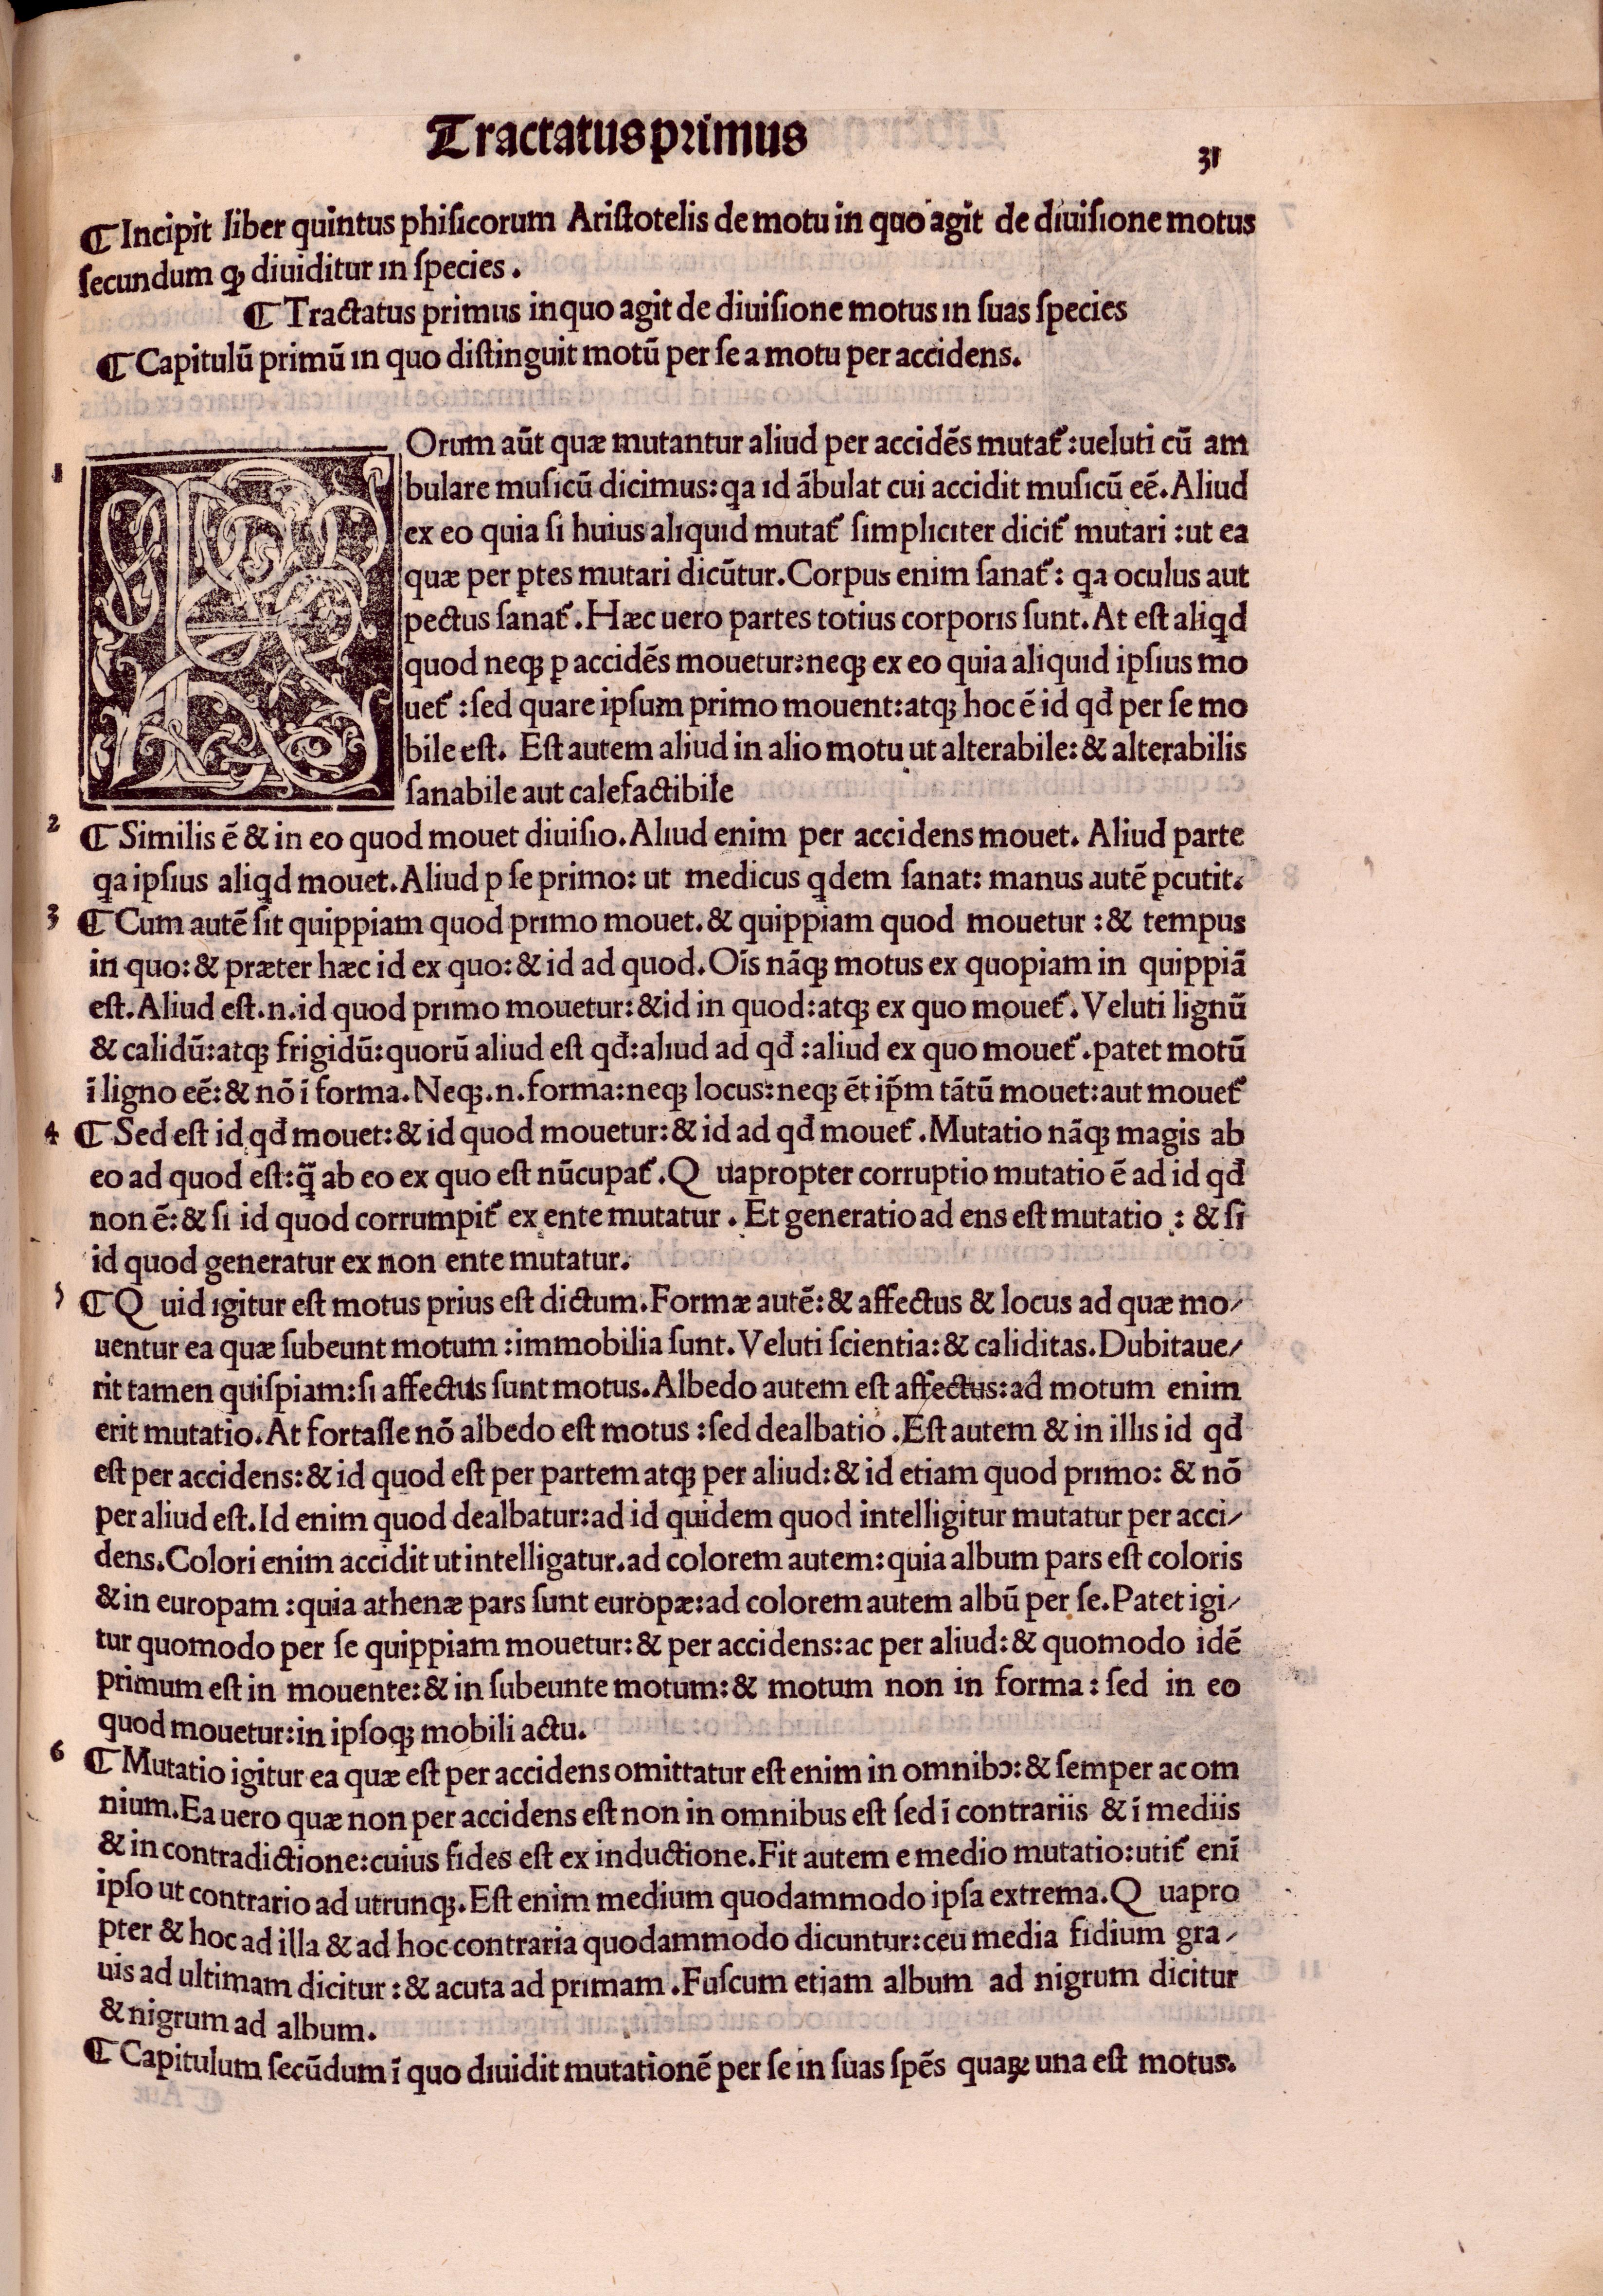 Tractatus primus
31
¶ Incipit liber quintus phisicorum Aristotelis de motu in quo agit de diuisione motus
secundum ꝙ diuiditur in species.
¶ Tractatus primus inquo agit de diuisione motus in suas species
¶ Capitulū primū in quo distinguit motū per se a motu per accidens.
1 EOrum aūt quæ mutantur aliud per accidēs mutat᷑: ueluti cū am
bulare musicū dicimus: qa id ābulat cui accidit musicū eē. Aliud
ex eo quia si huius aliquid mutat᷑ simpliciter dicit᷑ mutari: ut ea
quæ per ꝑtes mutari dicūtur. Corpus enim sanat᷑: qa oculus aut
pectus sanat᷑. Hæc uero partes totius corporis sunt. At est aliqd
quod neqꝫ ꝑ accidēs mouetur: neqꝫ ex eo quia aliquid ipsius mo
uet᷑: sed quare ipsum primo mouent: atqꝫ hoc ē id qđ per se mo
bile est. Est autem aliud in alio motu ut alterabile: & alterabilis
sanabile aut calefactibile
2 ¶ Similis ē & in eo quod mouet diuisio. Aliud enim per accidens mouet. Aliud parte
qa ipsius aliqd mouet. Aliud ꝑ se primo: ut medicus qdem sanat: manus autē ꝑcutit.
3 ¶ Cum autē sit quippiam quod primo mouet. & quippiam quod mouetur: & tempus
in quo: & præter hæc id ex quo: & id ad quod. Oīs nāqꝫ motus ex quopiam in quippiā
est. Aliud est. n. id quod primo mouetur: & id in quod: atqꝫ ex quo mouet᷑. Veluti lignū
& calidū: atqꝫ frigidū: quorū aliud est qđ: aliud ad qđ: aliud ex quo mouet᷑. patet motū
ī ligno eē: & nō ī forma. Neqꝫ. n. forma: neqꝫ locus: neqꝫ ēt ip̄m tātū mouet: aut mouet᷑
4 ¶ Sed est id qđ mouet: & id quod mouetur: & id ad qđ mouet᷑. Mutatio nāqꝫ magis ab
eo ad quod est: q̄ ab eo ex quo est nūcupat᷑. Q uapropter corruptio mutatio ē ad id qđ
non ē: & si id quod corrumpit᷑ ex ente mutatur. Et generatio ad ens est mutatio: & si
id quod generatur ex non ente mutatur.
5 ¶ Q uid igitur est motus prius est dictum. Formæ autē: & affectus & locus ad quæ mo/
uentur ea quæ subeunt motum: immobilia sunt. Veluti scientia: & caliditas. Dubitaue/
rit tamen quispiam: si affectus sunt motus. Albedo autem est affectus: ad motum enim
erit mutatio. At fortasse nō albedo est motus: sed dealbatio. Est autem & in illis id qđ
est per accidens: & id quod est per partem atqꝫ per aliud: & id etiam quod primo: & nō
per aliud est. Id enim quod dealbatur: ad id quidem quod intelligitur mutatur per acci/
dens. Colori enim accidit ut intelligatur. ad colorem autem: quia album pars est coloris
& in europam: quia athenæ pars sunt europæ: ad colorem autem albū per se. Patet igi/
tur quomodo per se quippiam mouetur: & per accidens: ac per aliud: & quomodo idē
primum est in mouente: & in subeunte motum: & motum non in forma: sed in eo
quod mouetur: in ipsoqꝫ mobili actu.
6 ¶ Mutatio igitur ea quæ est per accidens omittatur est enim in omnibꝰ: & semper ac om
nium. Ea uero quæ non per accidens est non in omnibus est sed ī contrariis & ī mediis
& in contradictione: cuius fides est ex inductione. Fit autem e medio mutatio: utit᷑ enī
ipso ut contrario ad utrunqꝫ. Est enim medium quodammodo ipsa extrema. Q uapro
pter & hoc ad illa & ad hoc contraria quodammodo dicuntur: ceu media fidium gra/
uis ad ultimam dicitur: & acuta ad primam. Fuscum etiam album ad nigrum dicitur
& nigrum ad album.
¶ Capitulum secūdum ī quo diuidit mutationē per se in suas spēs quaꝝ una est motus.